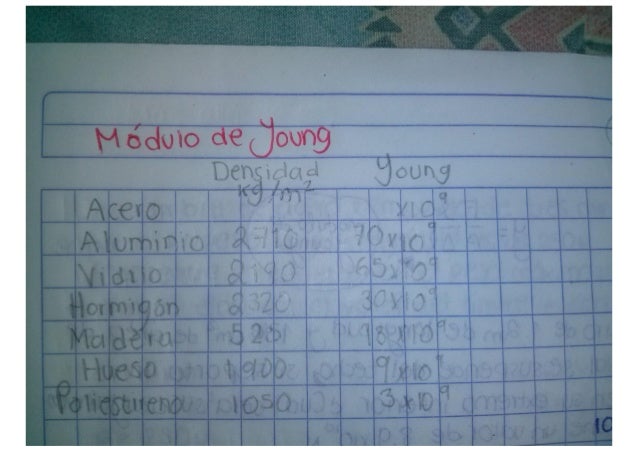 Módulo de Young
Densidad Young
kg/m²
Acero x10⁹
Aluminio 2710 70x10⁹
Vidrio 2190 65x10⁹
Hormigón 2320 30x10⁹
Madera 525 13x10⁹
Hueso 1900 9x10⁹
Poliestireno 1050 3x10⁹
10